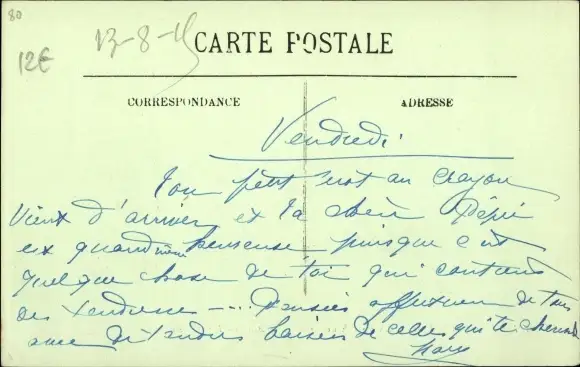 80
12€
13-8-15
CARTE POSTALE
CORRESPONDANCE
ADRESSE
Vendredi
Ton petit mot au crayon
Vient d'arriver et ta chère
est quand même heureuse puisque c'est
quelque chose de toi qui contient
des tendresses --- Pensées de tous
avec de tendres baisers de celle qui te